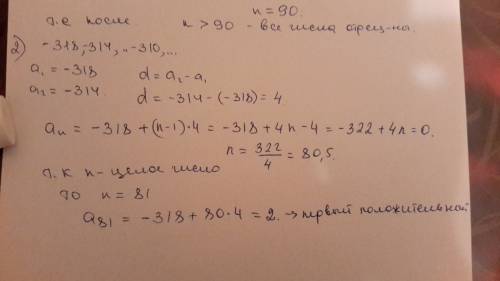 n = 90.
т.е после n > 90 - все числа отриц-на.
2) -318, -314, .. -310, ...
a₁ = -318 d = a₂ - a₁
a₂ = -314 d = -314 - (-318) = 4
aₙ = -318 + (n-1)·4 = -318 + 4n - 4 = -322 + 4n = 0.
n = 322/4 = 80,5.
т.к n - целое число
то n = 81
a₈₁ = -318 + 80·4 = 2. → первый положительной